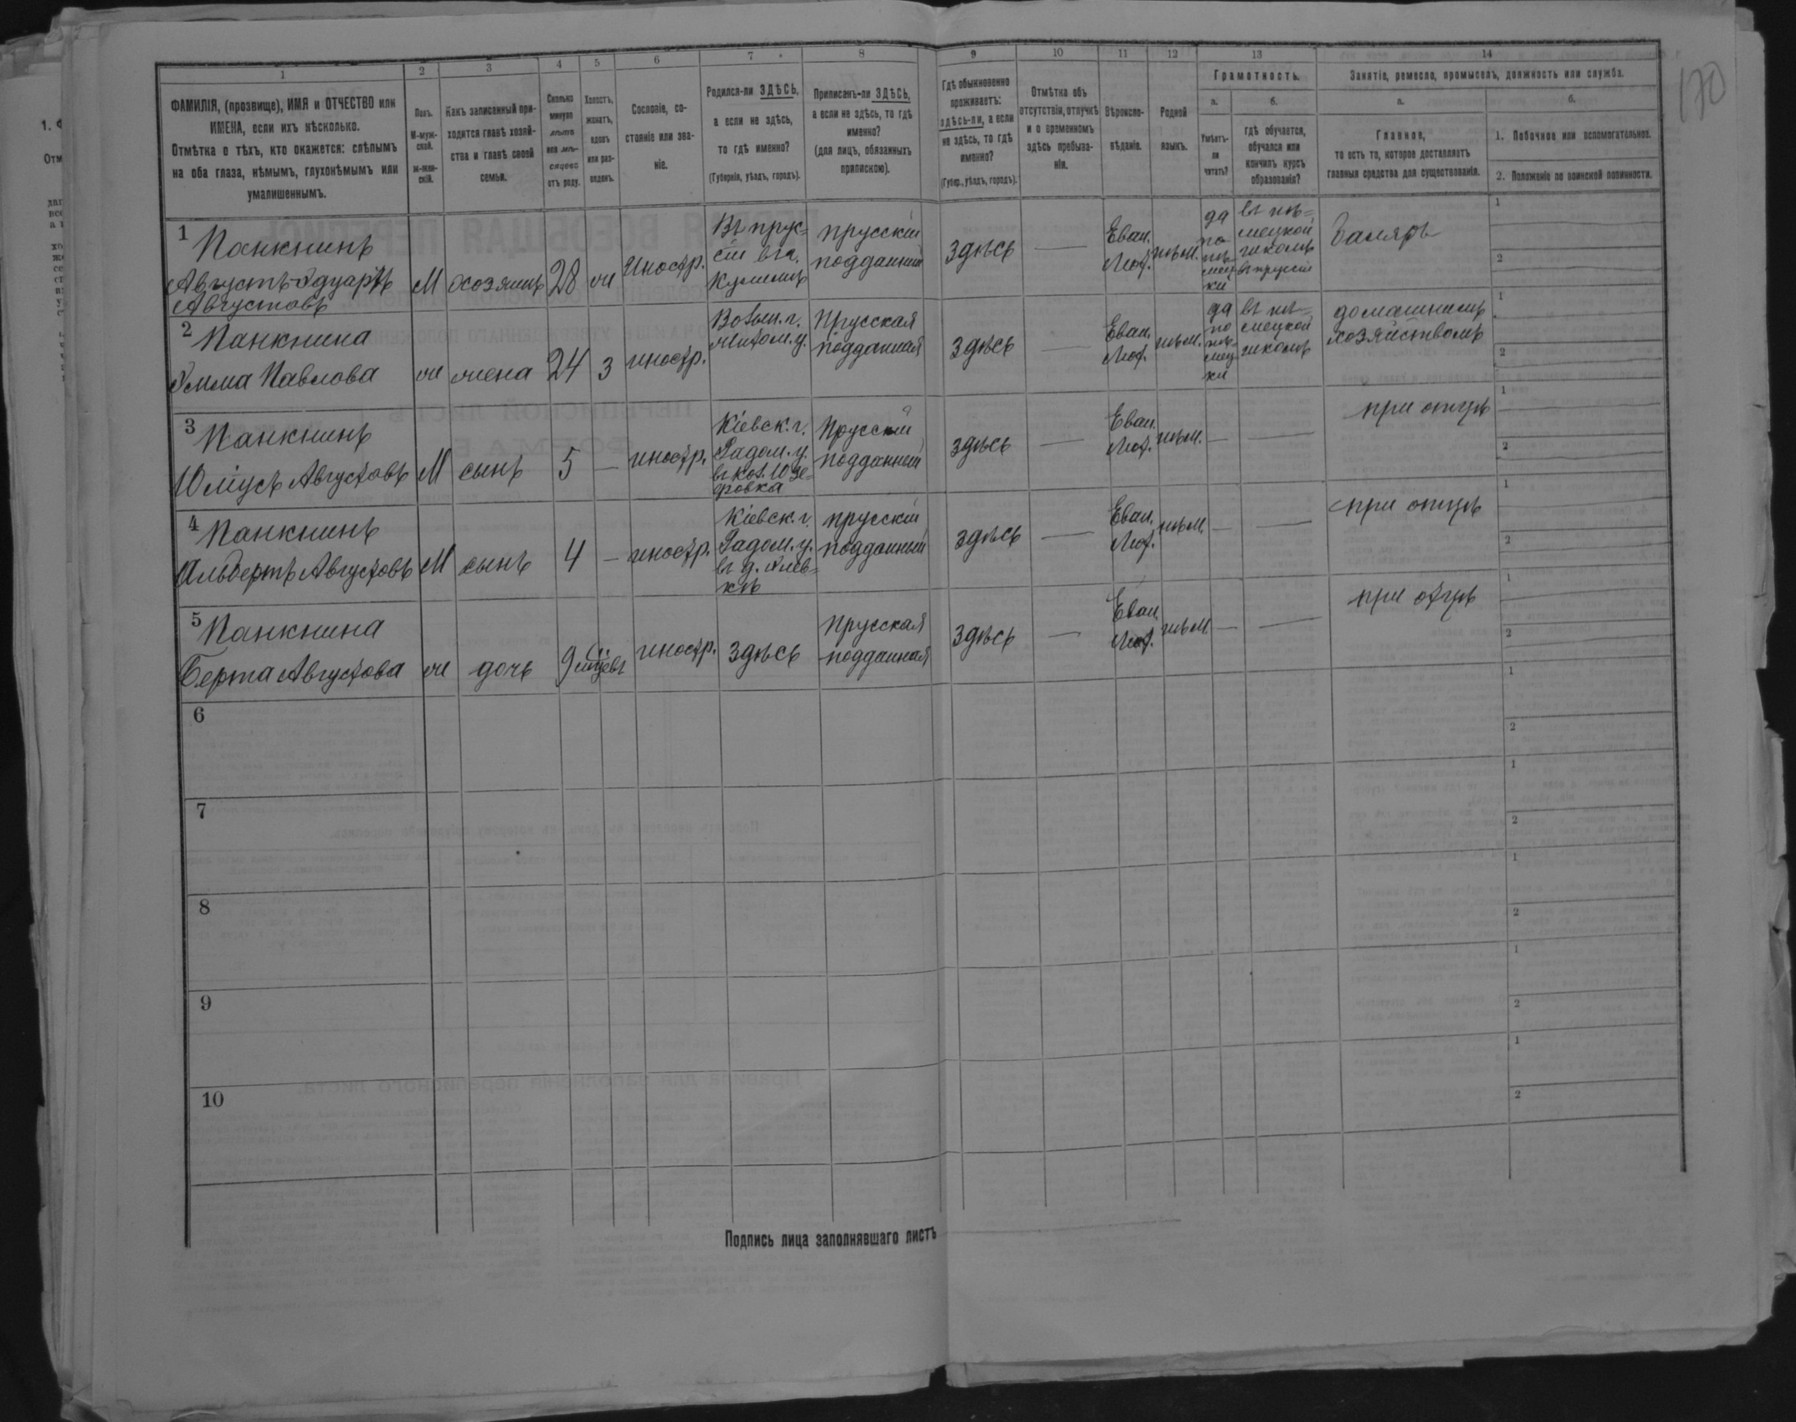 170
1
2
3
4
5
6
7
8
9
10
11
12
13
14
ФАМИЛІЯ, (прозвище), ИМЯ и ОТЧЕСТВО или
ИМЕНА, если ихъ нѣсколько.
Отмѣтка о тѣхъ, кто окажется: слѣпымъ
на оба глаза, нѣмымъ, глухонѣмымъ или
умалишеннымъ.
Полъ.
М-муж-
ской.
Ж-жен-
скій.
Какъ записанный при-
ходится главѣ хозяй-
ства и главѣ своей
семьи.
Сколько
минуло
лѣтъ
или мѣ-
сяцевъ
отъ роду.
Холостъ,
женатъ,
вдовъ
или раз-
веденъ.
Сословіе, со-
стояніе или зва-
ніе.
Родился-ли ЗДѢСЬ,
а если не здѣсь,
то гдѣ именно?
(Губернія, уѣздъ, городъ).
Приписанъ-ли ЗДѢСЬ,
а если не здѣсь, то гдѣ
именно?
(для лицъ, обязанныхъ
припискою).
Гдѣ обыкновенно
проживаетъ:
здѣсь-ли, а если
не здѣсь, то гдѣ
именно?
(Губер., уѣздъ, городъ).
Отмѣтка объ
отсутствіи, отлучкѣ
и о временномъ
здѣсь пребыва-
ніи.
Вѣроиспо-
вѣданіе.
Родной
языкъ.
Грамотность.
а.
Умѣетъ-
ли
читать?
б.
гдѣ обучается,
обучался или
кончилъ курсъ
образованія?
Занятіе, ремесло, промыселъ, должность или служба.
а.
Главное,
то есть то, которое доставляетъ
главныя средства для существованія.
б.
1. Побочное или вспомогательное.
2. Положеніе по воинской повинности.
1 Панкнинъ
Августъ-Эдуардъ
Августовъ
М
хозяинъ
28
ж
Иностр.
Въ прус-
сіи въ г.
прусскій
подданный
здѣсь
—
Еван.
Лют.
нѣм.
да
по
нѣ-
мец-
ки
въ нѣ-
мецкой
школѣ
въ пруссіи
1
2
2 Панкнина
Эмма Павлова
ж
жена
24
з
иностр.
Волын. г.
Житом. у.
Прусская
подданная
здѣсь
—
Еван.
Лют.
нѣм.
да
по
нѣ-
мец-
ки
въ нѣ-
мецкой
школѣ
домашнимъ
хозяйствомъ
1
2
3 Панкнинъ
Юліусъ Августовъ
М
сынъ
5
—
иностр.
Кіевск. г.
Радом. у.
въ кол. Юзе-
фовка
Прусскій
подданный
здѣсь
—
Еван.
Лют.
нѣм.
—
—
при отцѣ
1
2
4 Панкнинъ
Альбертъ Августовъ
М
сынъ
4
—
иностр.
Кіевск. г.
Радом. у.
прусскій
подданный
здѣсь
—
Еван.
Лют.
нѣм.
—
—
при отцѣ
1
2
5 Панкнина
Берта Августова
ж
дочь
9 мѣсяцевъ
иностр.
здѣсь
Прусская
подданная
здѣсь
—
Еван.
Лют.
нѣм.
—
—
при отцѣ
1
2
6
1
2
7
1
2
8
1
2
9
1
2
10
1
2
Подпись лица заполнявшаго листъ